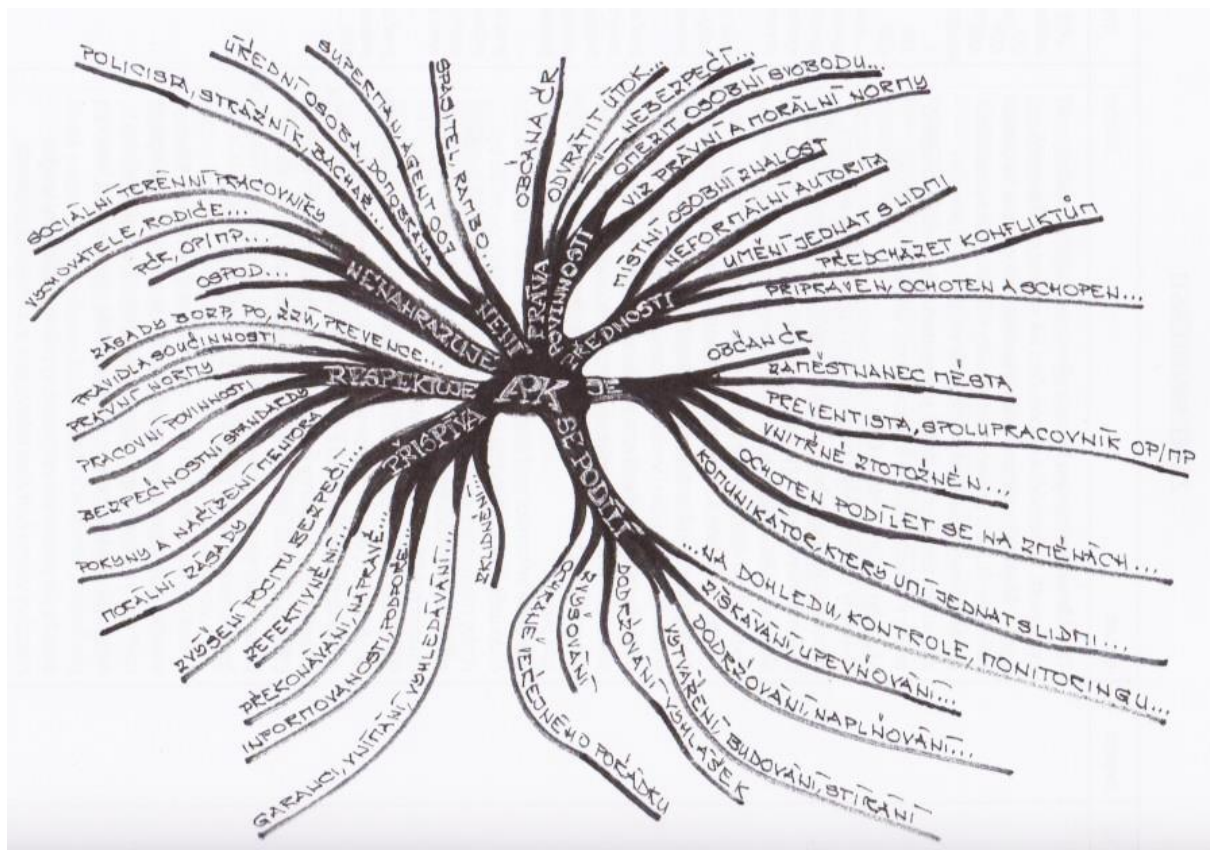 APK
JE
OBČAN ČR
ZAMĚSTNANEC MĚSTA
PREVENTISTA, SPOLUPRACOVNÍK OP/MP
VNITŘNĚ ZTOTOŽNĚN...
OCHOTEN PODÍLET SE NA ZMĚNÁCH...
KOMUNIKÁTOR, KTERÝ UMÍ JEDNAT S LIDMI...
SE PODÍLÍ
...NA DOHLEDU, KONTROLE, MONITORINGU...
ZÍSKÁVÁNÍ, UPEVŇOVÁNÍ...
DODRŽOVÁNÍ, NAPLŇOVÁNÍ...
VYTVÁŘENÍ, BUDOVÁNÍ, STÍRÁNÍ
DODRŽOVÁNÍ VYHLÁŠEK
ZVYŠOVÁNÍ
OCHRANĚ VEŘEJNÉHO POŘÁDKU
PŘISPÍVÁ
ZKLIDNĚNÍ...
GARANCI, VNÍMÁNÍ, VYHLEDÁVÁNÍ...
INFORMOVANOSTI, PODPOŘE...
PŘEKONÁVÁNÍ, NÁPRAVĚ...
ZEFEKTIVNĚNÍ...
ZVÝŠENÍ POCITU BEZPEČÍ...
RESPEKTUJE
MORÁLNÍ ZÁSADY
POKYNY A NAŘÍZENÍ MENTORA
BEZPEČNOSTNÍ STANDARDY
PRACOVNÍ POVINNOSTI
PRÁVNÍ NORMY
PRAVIDLA SOUČINNOSTI
ZÁSADY BOZP, PO, PREVENCE...
NENAHRAZUJE
OSPOD...
PČR, OP/MP...
VYCHOVATELE, RODIČE...
SOCIÁLNÍ TERÉNNÍ PRACOVNÍKY
NENÍ
POLICISTA, STRÁŽNÍK, BACHAŘ...
ÚŘEDNÍ OSOBA, DOMOBRANA
SUPERMAN, AGENT 007
SPASITEL, RAMBO...
PRÁVA
POVINNOSTI
OBČANA ČR
ODVRÁTIT ÚTOK...
NEBEZPEČÍ...
OMEZIT OSOBNÍ SVOBODU...
VIZ PRÁVNÍ A MORÁLNÍ NORMY
PŘEDNOSTI
MÍSTNÍ, OSOBNÍ ZNALOST
NEFORMÁLNÍ AUTORITA
UMĚNÍ JEDNAT S LIDMI
PŘEDCHÁZET KONFLIKTŮM
PŘIPRAVEN, OCHOTEN A SCHOPEN...